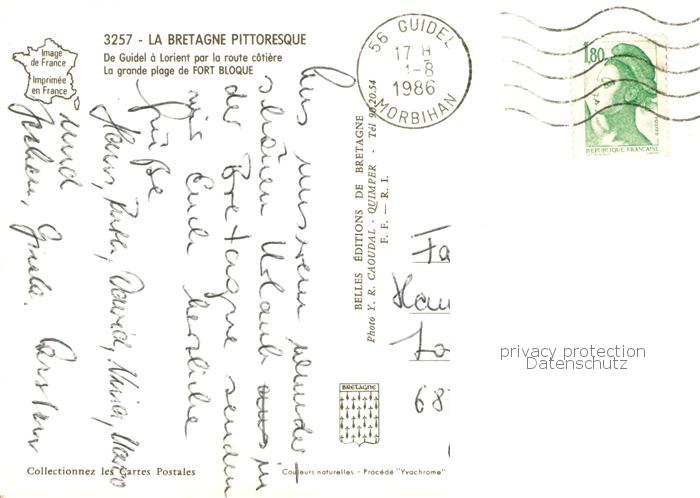 3257 - LA BRETAGNE PITTORESQUE
De Guidel à Lorient par la route côtière
La grande plage de FORT BLOQUE
Image
de France
Imprimée
en France
56 GUIDEL
17 H
1-8
1986
MORBIHAN
1,80
POSTES
REPUBLIQUE FRANÇAISE
Aus unserem wunder-
schönen Urlaub aus in
der Bretagne senden
wir Euch herzliche
Grüße
Hanns, Ruth, David, Nina, Marco
und
Jochen, Gisela, Carsten
BELLES ÉDITIONS DE BRETAGNE
Photo Y. R. CAOUDAL - QUIMPER - Tél 90.20.54
F. F. — R. I.
Fa
Hau
68
privacy protection
Datenschutz
BRETAGNE
Collectionnez les Cartes Postales
Couleurs naturelles - Procédé "Yvachrome"